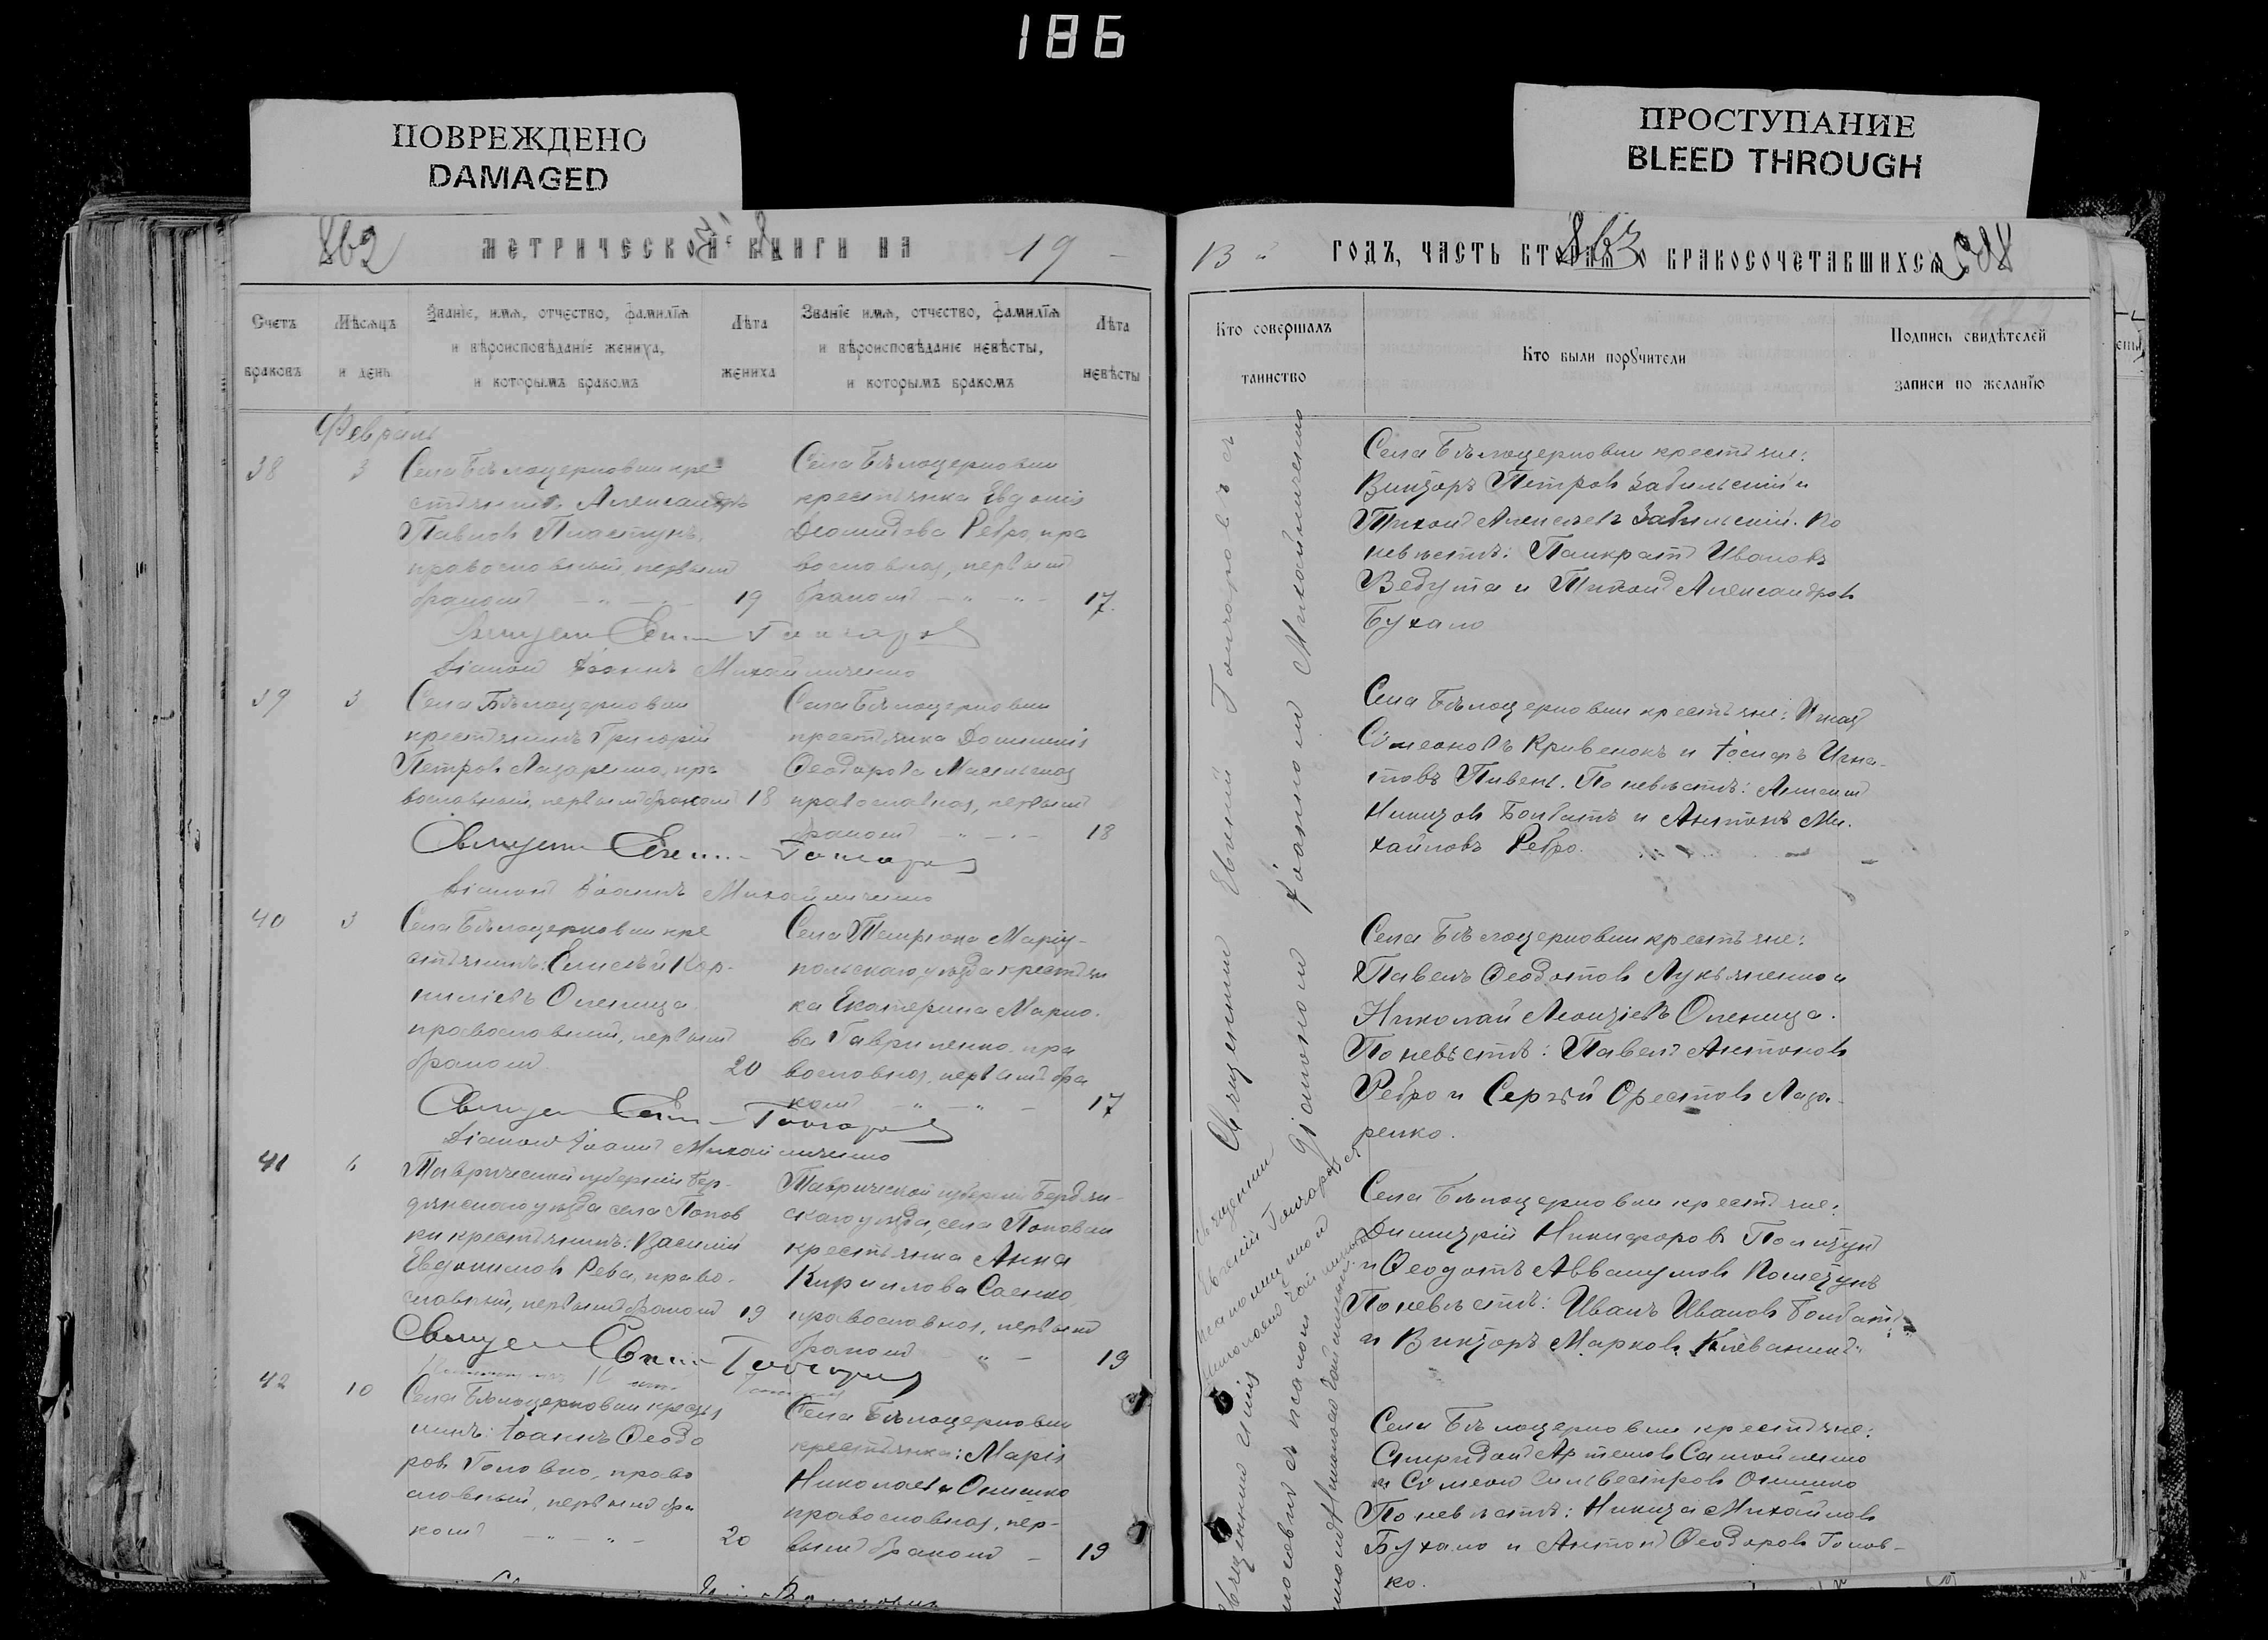 186
ПОВРЕЖДЕНО
DAMAGED
ПРОСТУПАНИЕ
BLEED THROUGH
862
МЕТРИЧЕСКОЙ КНИГИ НА 19
Счетъ браковъ
Мѣсяцъ и день
Званіе, имя, отчество, фамилія
и вѣроисповѣданіе жениха,
и которымъ бракомъ
Лѣта жениха
Званіе имя, отчество, фамилія
и вѣроисповѣданіе невѣсты,
и которымъ бракомъ
Лѣта невѣсты
Февраль
38 3
Села Бѣлоцерковки кре-
стьянинъ Александръ
Павловъ Пластунъ,
православный, первымъ
бракомъ 19
Села Бѣлоцерковки
крестьянка Евдокія
Діомидова Ребро, пра
вославная, первымъ
бракомъ 17.
Священ Гончаровъ
Діаконъ Іоаннъ Михайличенко
39 3
Села Бѣлоцерковки
крестьянинъ Григорій
Петровъ Лазаренко, пра
вославный, первымъ бракомъ 18
Села Бѣлоцерковки
крестьянка Домникія
Ѳеодорова
православная, первымъ
бракомъ 18
Священ Гончаровъ
Діаконъ Іоаннъ Михайличенко
40 3
Села Бѣлоцерковки кре
стьянинъ: Елисѣй Кор-
ниліевъ Оленица
православный, первымъ
бракомъ 20
Села Темрюка Маріу-
польскаго уѣзда крестьян
ка Екатерина Марко-
ва Гавриленко, пра
вославная, первымъ бра
комъ 17
Священ Гончаровъ
Діаконъ Іоаннъ Михайличенко
41 6
Таврической губерніи Бер-
дянскаго уѣзда села Попов
ки крестьянинъ: Василій
Евдокимовъ Рева, право-
славный, первымъ бракомъ 19
Таврической губерніи Бердян-
скаго уѣзда, села Поповки
крестьянка Анна
Кириллова Саенко
православная, первымъ
бракомъ 19
Священ Гончаровъ
42 10
Села Бѣлоцерковки крестья
нинъ: Іоаннъ Ѳеодо
ровъ Головко, право
славный, первымъ бра
комъ 20
Села Бѣлоцерковки
крестьянка: Марія
Николаева Онишко
православная, пер-
вымъ бракомъ 19
13 ГОДЪ, ЧАСТЬ ВТОРАЯ О БРАКОСОЧЕТАВШИХСЯ
863
Кто совершалъ таинство
Кто были поручители
Подпись свидѣтелей
записи по желанію
Священникъ Евгеній Гончаровъ съ
діакономъ Іоанномъ Михайличенко
Села Бѣлоцерковки крестьяне:
Викторъ Петровъ Забильскій и
Тихонъ Алексѣевъ Забильскій. По
невѣстѣ: Панкратъ Ивановъ
Ведута и Тихонъ Александровъ
Бухало
Села Бѣлоцерковки крестьяне: Игнатъ
Сѵмеоновъ Кривенокъ и Іосифъ Игна-
товъ Пивень. По невѣстѣ:
Никитовъ Болбатъ и Антонъ Ми-
хайловъ Ребро.
Села Бѣлоцерковки крестьяне:
Павелъ Ѳеодотовъ Лукьяненко и
Николай Леонтіевъ Оленица.
По невѣстѣ: Павелъ Антоновъ
Ребро и Сергѣй Орестовъ Лаза-
ренко.
Села Бѣлоцерковки крестьяне:
Димитрій Никифоровъ
и Ѳеодотъ Аввакумовъ
По невѣстѣ: Иванъ Ивановъ Болбатъ
и Викторъ Марковъ
Села Бѣлоцерковки крестьяне:
Спиридонъ Артемовъ Самойленко
и Сѵмеонъ Сильвестровъ Онишко
По невѣстѣ: Никита Михайловъ
Бухало и Антонъ Ѳеодоровъ Голов-
ко.